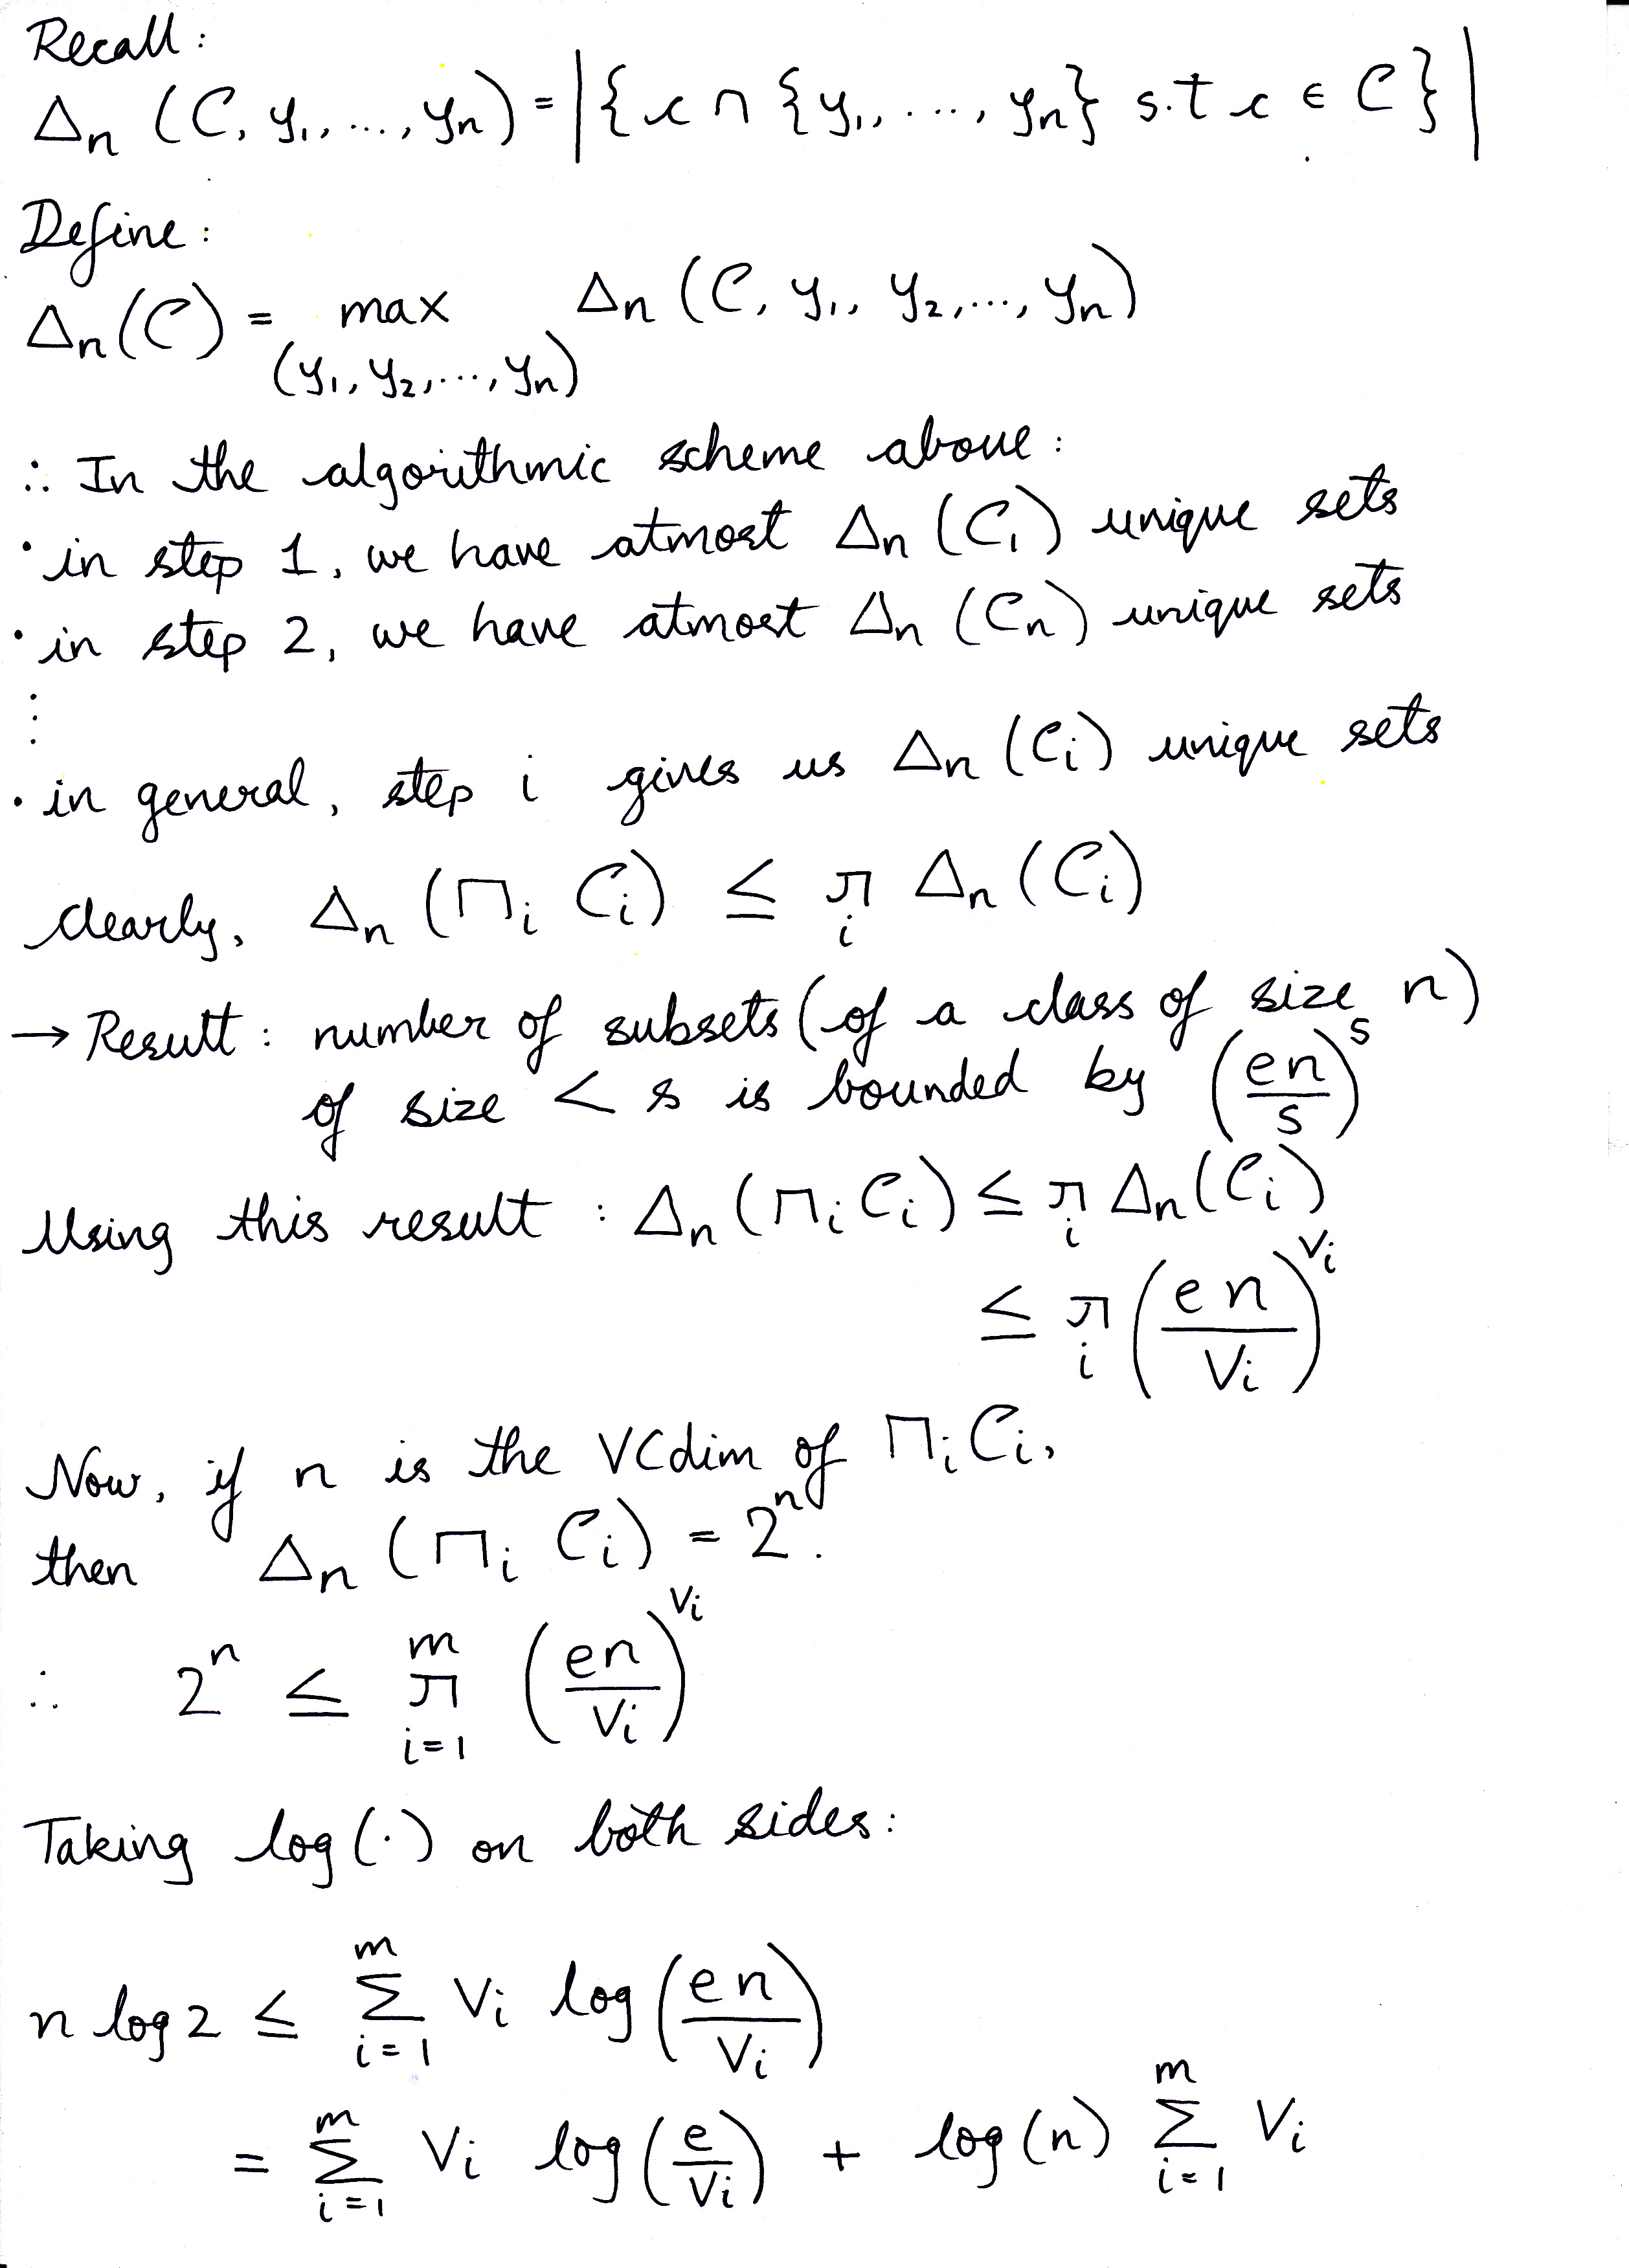 Recall:
Δn (C, y1, ..., yn) = |{c ∩ {y1, ..., yn} s.t c ∈ C}|
Define:
Δn(C) = max Δn (C, y1, y2, ..., yn)
(y1, y2, ..., yn)
∴ In the algorithmic scheme above:
• in step 1, we have atmost Δn (C1) unique sets
• in step 2, we have atmost Δn (Cn) unique sets
⋮
• in general, step i gives us Δn (Ci) unique sets
clearly, Δn (⊓i Ci) ≤ π_i Δn (Ci)
→ Result: number of subsets (of a class of size n)
of size < s is bounded by (en/s)^s
Using this result : Δn (⊓i Ci) ≤ π_i Δn (Ci)
≤ π_i (en/Vi)^Vi
Now, if n is the VCdim of ⊓i Ci,
then Δn (⊓i Ci) = 2^n.
∴ 2^n ≤ π_{i=1}^m (en/Vi)^Vi
Taking log(·) on both sides:
n log 2 ≤ Σ_{i=1}^m Vi log (en/Vi)
= Σ_{i=1}^m Vi log (e/Vi) + log (n) Σ_{i=1}^m Vi